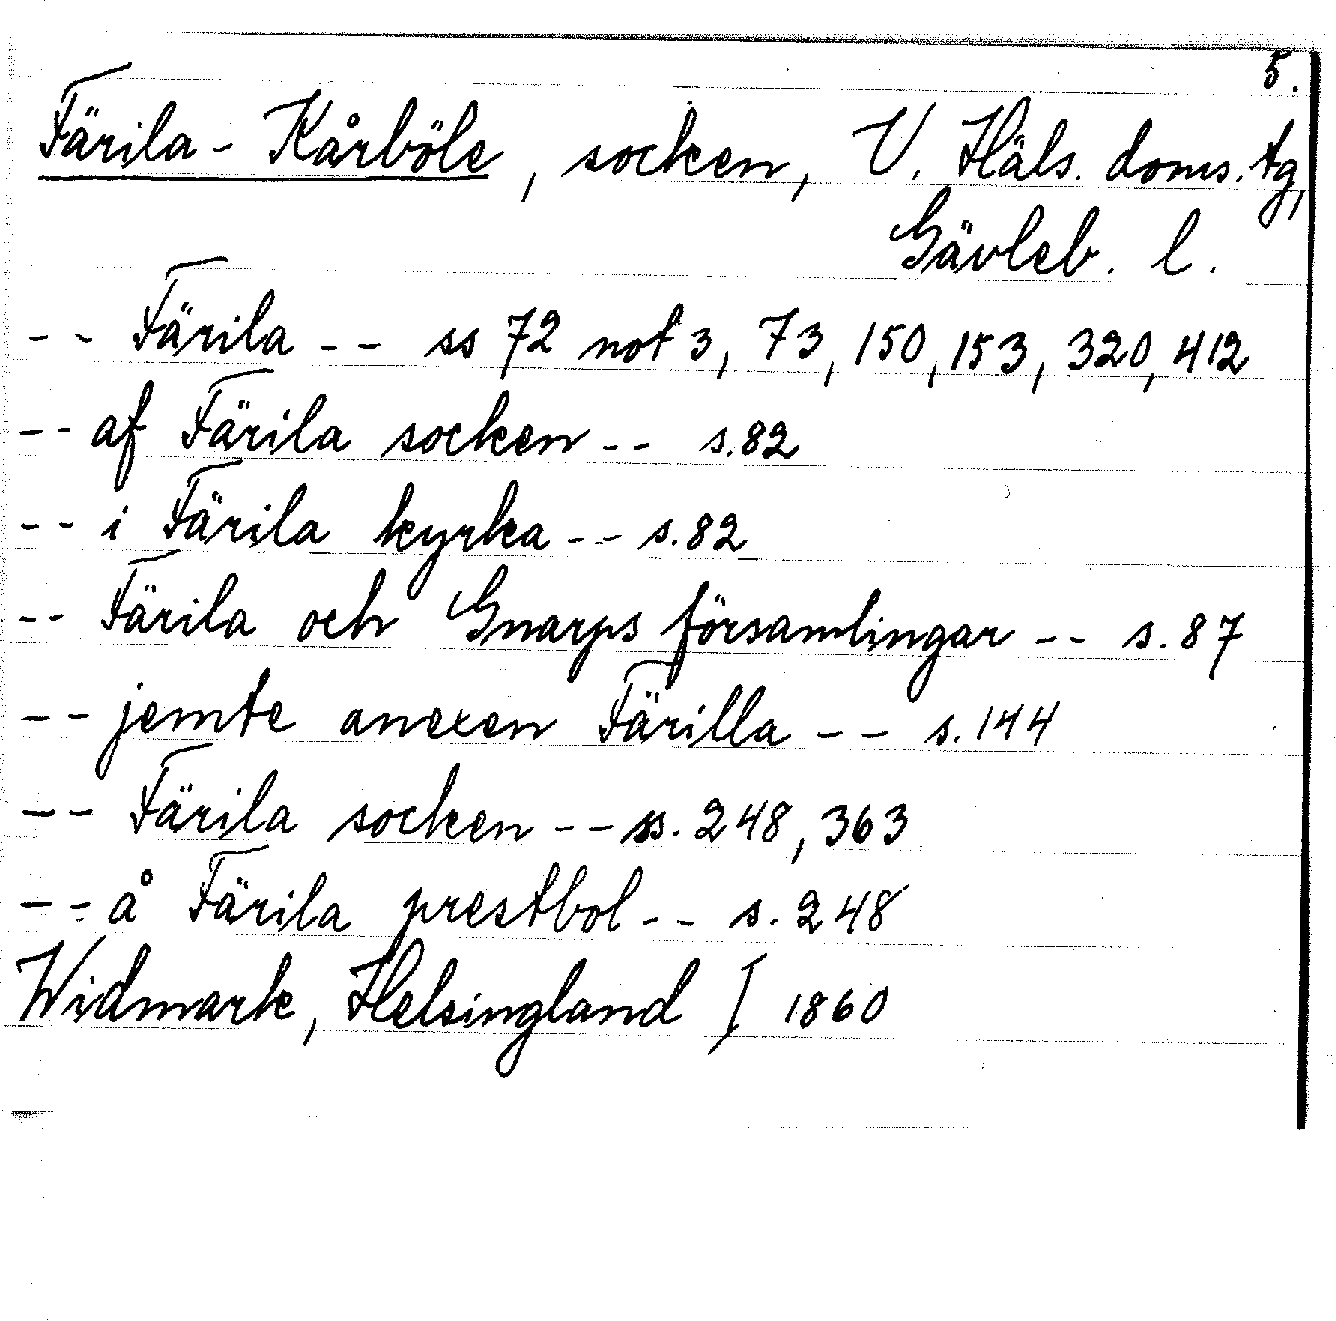 5.
Färila - Kårböle, socken, V. Häls. doms. tg,
Gävleb. l.
-- Färila -- ss 72 not 3, 73, 150, 153, 320, 412
-- af Färila socken -- s. 82
-- i Färila kyrka -- s. 82
-- Färila och Gnarps församlingar -- s. 87
-- jemte anexen Färilla -- s. 144
-- Färila socken -- ss. 248, 363
-- å Färila prestbol -- s. 248
Widmark, Helsingland I 1860